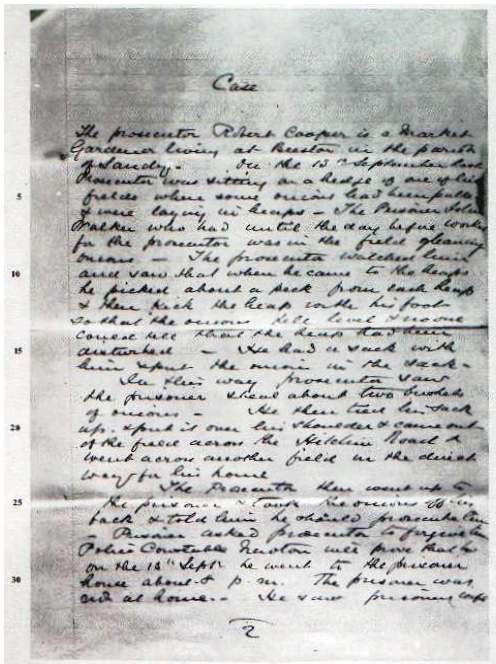 Case
The prosecutor Robert Cooper is a Market
Gardener living at Beeston in the parish
of Sandy. On the 13th September last
Prosecutor was sitting on a hedge of one of his
5
fields where some onions had been pulled
& were laying in heaps – The Prisoner John
Walker who had until the day before worked
for the prosecutor was in the field gleaning
onions – The prosecutor watched him
10
and saw that when he came to the heaps
he picked about a peck from each heap
& then kick the heap with his foot
so that the onions fell level & no one
could tell that the heap had been
15
disturbed – He had a sack with
him & put the onions in the sack –
In this way prosecutor saw
the prisoner steal about two bushels
of onions – He then tied his sack
20
up & put it over his shoulder & came out
of the field across the Hitchin Road &
went across another field in the direct
way for his home
The Prosecutor then went up to
25
the prisoner & took the onions off his
back & told him he should prosecute him
– Prisoner asked prosecutor to forgive him
Police Constable will prove that
on the 13th Sept he went to the prisoners
30
house about 8 p.m. The prisoner was
not at home. – He saw prisoners wife
2